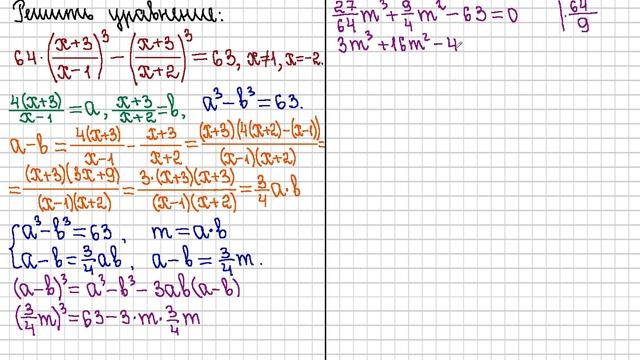 Решить уравнение:
64·((x+3)/(x-1))³-((x+3)/(x+2))³=63, x≠1, x=-2.
4(x+3)/(x-1)=a, (x+3)/(x+2)=b, a³-b³=63.
a-b=4(x+3)/(x-1)-(x+3)/(x+2)=(x+3)(4(x+2)-(x-1))/((x-1)(x+2))=
=(x+3)(3x+9)/((x-1)(x+2))=3·(x+3)(x+3)/((x-1)(x+2))=3/4 a·b
{a³-b³=63, m=a·b
a-b=3/4 ab, a-b=3/4 m.
(a-b)³=a³-b³-3ab(a-b)
(3/4 m)³=63-3·m·3/4 m
27/64 m³+9/4 m²-63=0 |·64/9
3m³+16m²-4